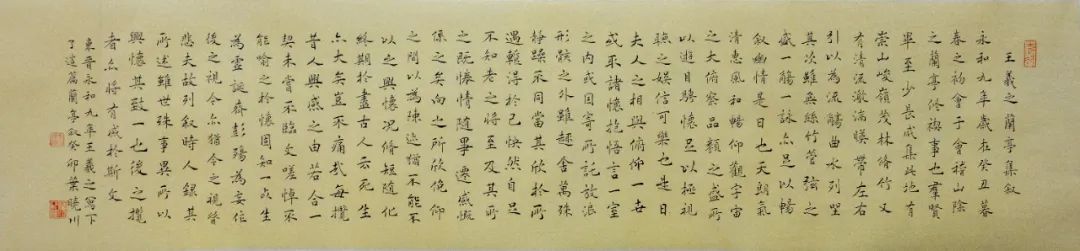 王羲之蘭亭集叙
永和九年歲在癸丑暮
春之初會于會稽山陰
之蘭亭修禊事也羣賢
畢至少長咸集此地有
崇山峻嶺茂林脩竹又
有清流激湍暎帶左右
引以為流觴曲水列坐
其次雖無絲竹管弦之
盛一觴一詠亦足以暢
叙幽情是日也天朗氣
清惠風和暢仰觀宇宙
之大俯察品類之盛所
以遊目騁懷足以極視
聽之娛信可樂也是日
夫人之相與俯仰一世
或取諸懷抱悟言一室
之內或因寄所託放浪
形骸之外雖趣舍萬殊
静躁不同當其欣於所
遇輙得於己快然自足
不知老之將至及其所
之既惓情隨事遷感慨
係之矣向之所欣俛仰
之間以為陳迹猶不能不
以之興懷況脩短隨化
終期於盡古人云死生
亦大矣豈不痛哉每攬
昔人興感之由若合一
契未嘗不臨文嗟悼不
能喻之於懷固知一死生
為虛誕齊彭殤為妄作
後之視今亦猶今之視昔
悲夫故列叙時人錄其
所述雖世殊事異所以
興懷其致一也後之攬
者亦將有感於斯文
東晉永和九年王羲之寫下
了這篇蘭亭叙癸卯葉曉川